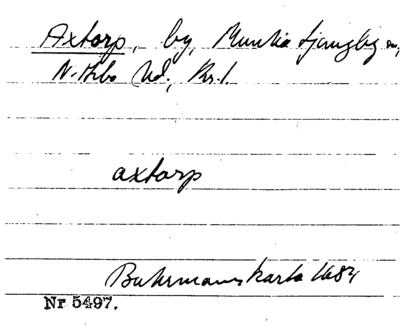 Axtorp, by, Munka Ljungby sn,
N. Åsbo hd, Kr. l.
axtorp
Buhrmans karta 1684
Nr 5497.